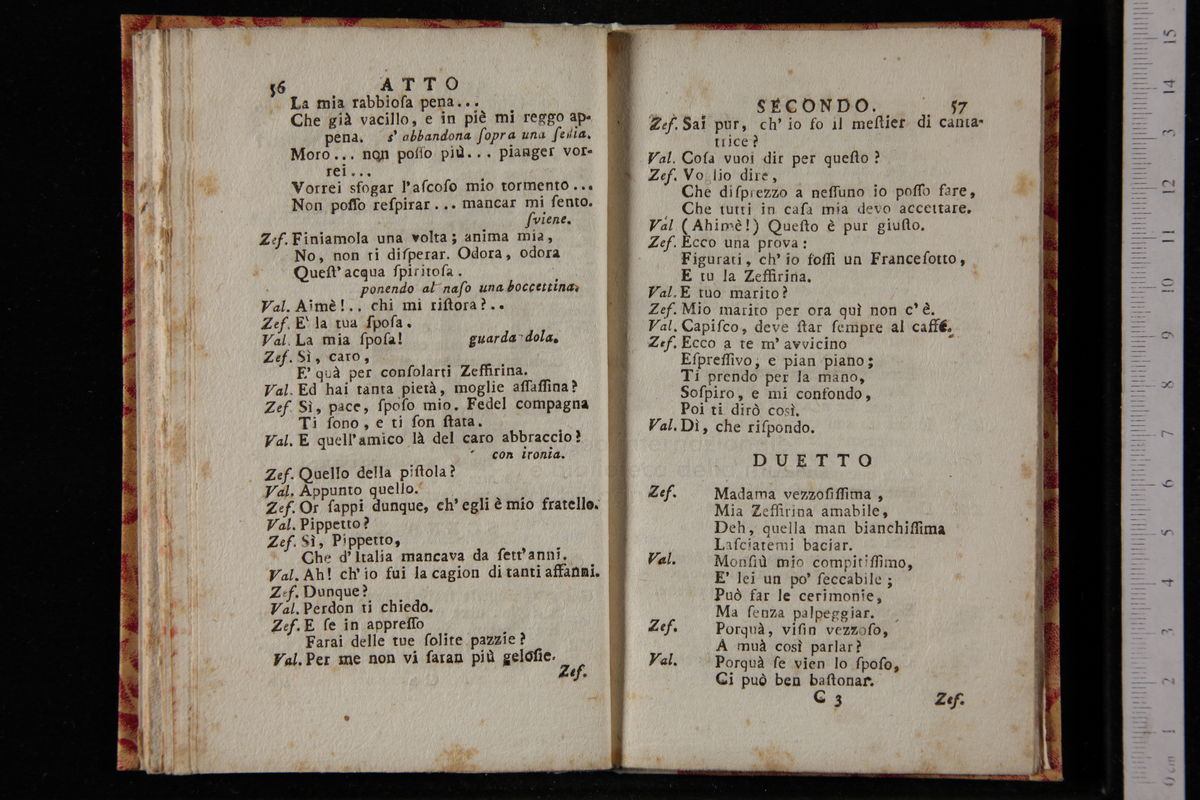 56 ATTO
La mia rabbioſa pena...
Che già vacillo, e in piè mi reggo ap-
pena. s' abbandona ſopra una ſedia.
Moro... non poſſo più... pianger vor-
rei...
Vorrei sfogar l'aſcoſo mio tormento...
Non poſſo reſpirar... mancar mi ſento.
ſviene.
Zef. Finiamola una volta; anima mia,
No, non ti diſperar. Odora, odora
Queſt' acqua ſpiritoſa.
ponendo al naſo una boccettina.
Val. Aimè!.. chi mi riſtora?..
Zef. E' la tua ſpoſa.
Val. La mia ſpoſa! guarda dola.
Zef. Sì, caro,
E' quà per conſolarti Zeffirina.
Val. Ed hai tanta pietà, moglie aſſaſſina?
Zef. Sì, pace, ſpoſo mio. Fedel compagna
Ti ſono, e ti ſon ſtata.
Val. E quell' amico là del caro abbraccio?
con ironia.
Zef. Quello della piſtola?
Val. Appunto quello.
Zef. Or ſappi dunque, ch' egli è mio fratello.
Val. Pippetto?
Zef. Sì, Pippetto,
Che d' Italia mancava da ſett' anni.
Val. Ah! ch' io fui la cagion di tanti affanni.
Zef. Dunque?
Val. Perdon ti chiedo.
Zef. E ſe in appreſſo
Farai delle tue ſolite pazzie?
Val. Per me non vi ſaran più geloſie.
Zef.
SECONDO. 57
Zef. Sai pur, ch' io fo il meſtier di canta-
trice?
Val. Coſa vuoi dir per queſto?
Zef. Voglio dire,
Che diſprezzo a neſſuno io poſſo fare,
Che tutti in caſa mia devo accettare.
Val (Ahimè!) Queſto è pur giuſto.
Zef. Ecco una prova:
Figurati, ch' io foſſi un Franceſotto,
E tu la Zeffirina.
Val. E tuo marito?
Zef. Mio marito per ora quì non c' è.
Val. Capiſco, deve ſtar ſempre al caffé.
Zef. Ecco a te m' avvicino
Eſpreſſivo, e pian piano;
Ti prendo per la mano,
Soſpiro, e mi confondo,
Poi ti dirò così.
Val. Dì, che riſpondo.
DUETTO
Zef. Madama vezzoſiſſima,
Mia Zeffirina amabile,
Deh, quella man bianchiſſima
Laſciatemi baciar.
Val. Monſiù mio compitiſſimo,
E' lei un po' ſeccabile;
Può far le cerimonie,
Ma ſenza palpeggiar.
Zef. Porquà, viſin vezzoſo,
A muà così parlar?
Val. Porquà ſe vien lo ſpoſo,
Ci può ben baſtonar.
C 3 Zef.
0 cm 1 2 3 4 5 6 7 8 9 10 11 12 13 14 15